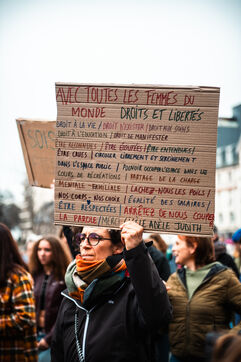 AVEC TOUTES LES FEMMES DU
MONDE DROITS ET LIBERTÉS
DROIT À LA VIE / DROIT D'EXISTER / DROIT AUX SOINS
DROIT À L'ÉDUCATION / DROIT DE MANIFESTER
ÊTRE RECONNUES / ÊTRE ÉCOUTÉES / ÊTRE ENTENDUES /
ÊTRE CRUES / CIRCULER LIBREMENT ET SEREINEMENT
DANS L'ESPACE PUBLIC / POUVOIR OCCUPER L'ESPACE DANS LES
COURS DE RÉCRÉATIONS / PARTAGE DE LA CHARGE
MENTALE - FAMILIALE / LÂCHEZ-NOUS LES POILS /
NOS CORPS NOS CHOIX / ÉGALITÉ DES SALAIRES
ÊTRE RESPECTÉES / ARRÊTEZ DE NOUS COUPER
LA PAROLE
ADÈLE JUDITH
SO